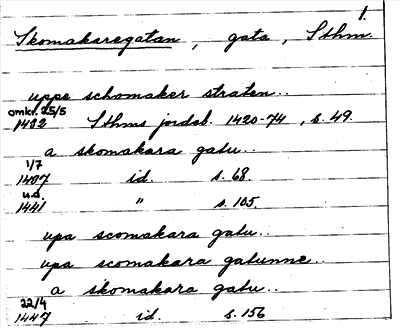 1.
Skomakaregatan, gata, Sthm.
uppe schomaker straten..
omkr. 25/5
1432 Sthms jordeb. 1420-74, s. 49.
a skomakara gatu..
1/7
1437 id. s. 68.
u.d.
1441 " s. 105.
upa scomakara gatu..
upa scomakara gatunne..
a skomakara gatu..
22/4
1447 id. s. 156